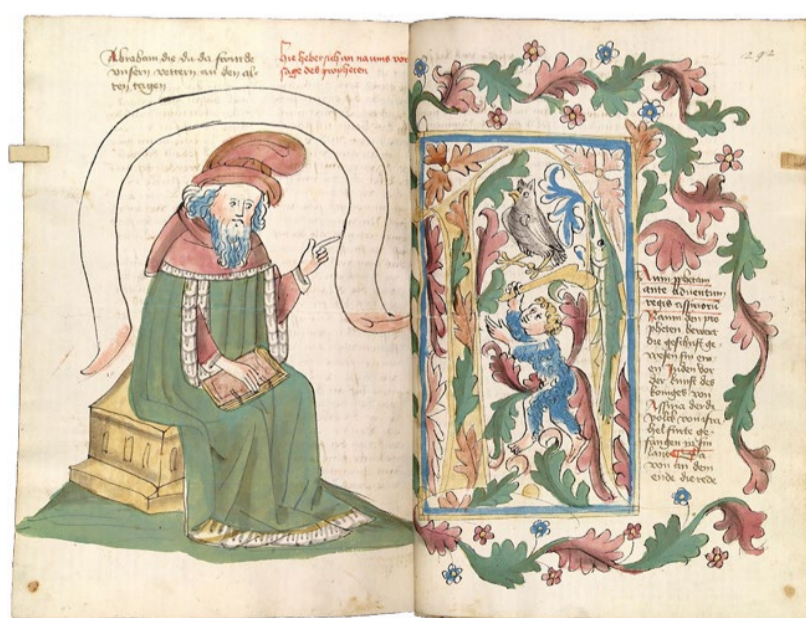 Abraham die du da sruade
vnsern vettern an den al-
ten tagen
Hie hebet sich an naums vor
sage des propheten
292
Naum prophetam
ante adventum
regis assiriorum
Naum den pro
pheten bewert
die geschrift ge-
wesen sin
en Juden vor
der kunft des
koniges von
Assiria der da
volck von isra
hel furte ge-
fangen in sin
lant
von an dem
ende die rede